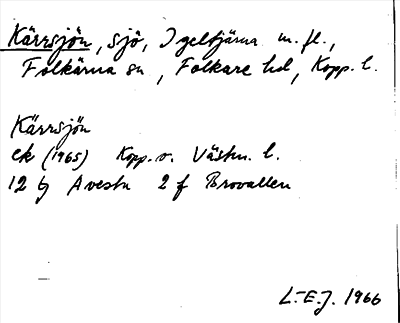 Kärrsjön, sjö, Igeltjärna m.fl.,
Folkärna sn, Folkare hd, Kopp. l.
Kärrsjön
ek (1965) Kopp. o. Västm. l.
12 G Avesta 2 f Brovallen
L.-E.J. 1966